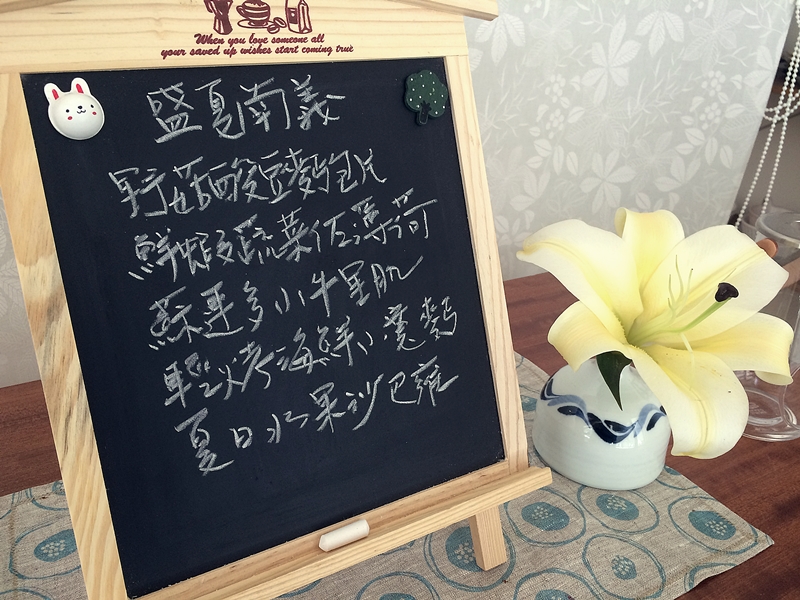 When you love someone all
your saved up wishes start coming true
盛夏南義
野菇酸豆麵包片
鮮蝦蔬菜佐薄荷
蘇連多小牛里肌
輕烤海鮮小寬麵
夏日水果沙巴雍